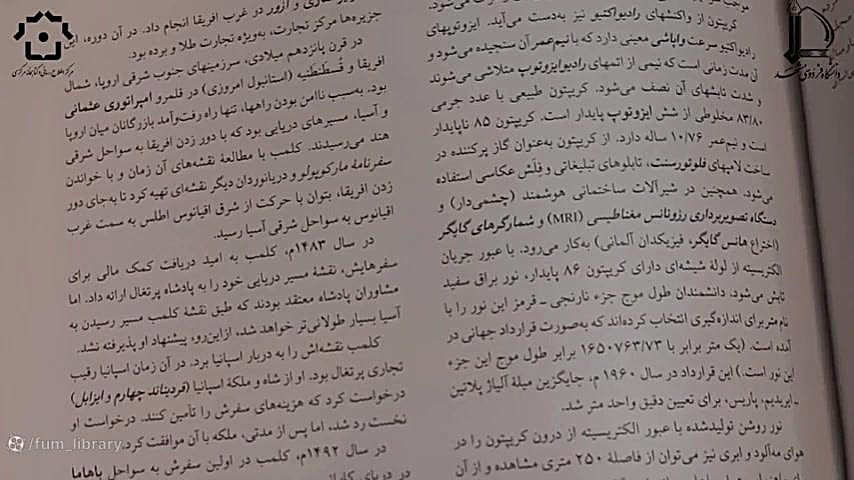 موجب
می‌شود.
کریپتون از واکنشهای رادیواکتیو نیز به‌دست می‌آید. ایزوتوپهای
رادیواکتیو سرعت واپاشی معینی دارد که با نیم‌عمر آن سنجیده می‌شود و
آن مدت زمانی است که نیمی از اتمهای رادیوایزوتوپ متلاشی می‌شوند
و شدت تابشهای آن نصف می‌شود. کریپتون طبیعی با عدد جرمی
۸۳/۸۰ مخلوطی از شش ایزوتوپ پایدار است. کریپتون ۸۵ ناپایدار
است و نیم‌عمر ۱۰/۷۶ ساله دارد. از کریپتون به‌عنوان گاز پرکننده در
ساخت لامپهای فلوئورسنت، تابلوهای تبلیغاتی و فِلَش عکاسی استفاده
می‌شود. همچنین در شیرآلات ساختمانی هوشمند (چشمی‌دار) و
دستگاه تصویربرداری رزونانس مغناطیسی (MRI) و شمارگرهای گایگر
(اختراع هانس گایگر، فیزیکدان آلمانی) به‌کار می‌رود. با عبور جریان
الکتریسیته از لولهٔ شیشه‌ای دارای کریپتون ۸۶ پایدار، نور براق سفید
تابش می‌شود. دانشمندان طول موج جزء نارنجی ـ قرمز این نور را با
نام متر برای اندازه‌گیری انتخاب کرده‌اند که به‌صورت قرارداد جهانی در
آمده است. (یک متر برابر با ۱۶۵۰۷۶۳/۷۳ برابر طول موج این جزء
این نور است.) این قرارداد در سال ۱۹۶۰ م، جایگزین میلهٔ آلیاژ پلاتین
ـ ایریدیم، پاریس، برای تعیین دقیق واحد متر شد.
نور روشن تولیدشده با عبور الکتریسیته از درون کریپتون را در
هوای مه‌آلود و ابری نیز می‌توان از فاصلهٔ ۲۵۰ متری مشاهده و از آن
و آزور در غرب افریقا انجام داد. در آن دوره، این
جزیره‌ها مرکز تجارت، به‌ویژه تجارت طلا و برده بود.
در قرن پانزدهم میلادی، سرزمینهای جنوب شرقی اروپا، شمال
افریقا و قُسطَنطَنیه (استانبول امروزی) در قلمرو امپراتوری عثمانی
بود. به‌سبب ناامن بودن راهها، تنها راه رفت‌وآمد بازرگانان میان اروپا
و آسیا، مسیرهای دریایی بود که با دور زدن افریقا به سواحل شرقی
هند می‌رسیدند. کلمب با مطالعهٔ نقشه‌های آن زمان و با خواندن
سفرنامهٔ مارکوپولو و دریانوردان دیگر نقشه‌ای تهیه کرد تا به‌جای دور
زدن افریقا، بتوان با حرکت از شرق اقیانوس اطلس به سمت غرب
اقیانوس به سواحل شرقی آسیا رسید.
در سال ۱۴۸۳م، کلمب به امید دریافت کمک مالی برای
سفرهایش، نقشهٔ مسیر دریایی خود را به پادشاه پرتغال ارائه داد. اما
مشاوران پادشاه معتقد بودند که طبق نقشهٔ کلمب مسیر رسیدن به
آسیا بسیار طولانی‌تر خواهد شد، ازاین‌رو، پیشنهاد او پذیرفته نشد.
کلمب نقشه‌اش را به دربار اسپانیا برد. در آن زمان اسپانیا رقیب
تجاری پرتغال بود. او از شاه و ملکهٔ اسپانیا (فردیناند چهارم و ایزابل)
درخواست کرد که هزینه‌های سفرش را تأمین کنند. درخواست او
نخست رد شد، اما پس از مدتی، ملکه با آن موافقت کرد.
در سال ۱۴۹۲م، کلمب در اولین سفرش به سواحل باهاما
در دریای
/fum_library